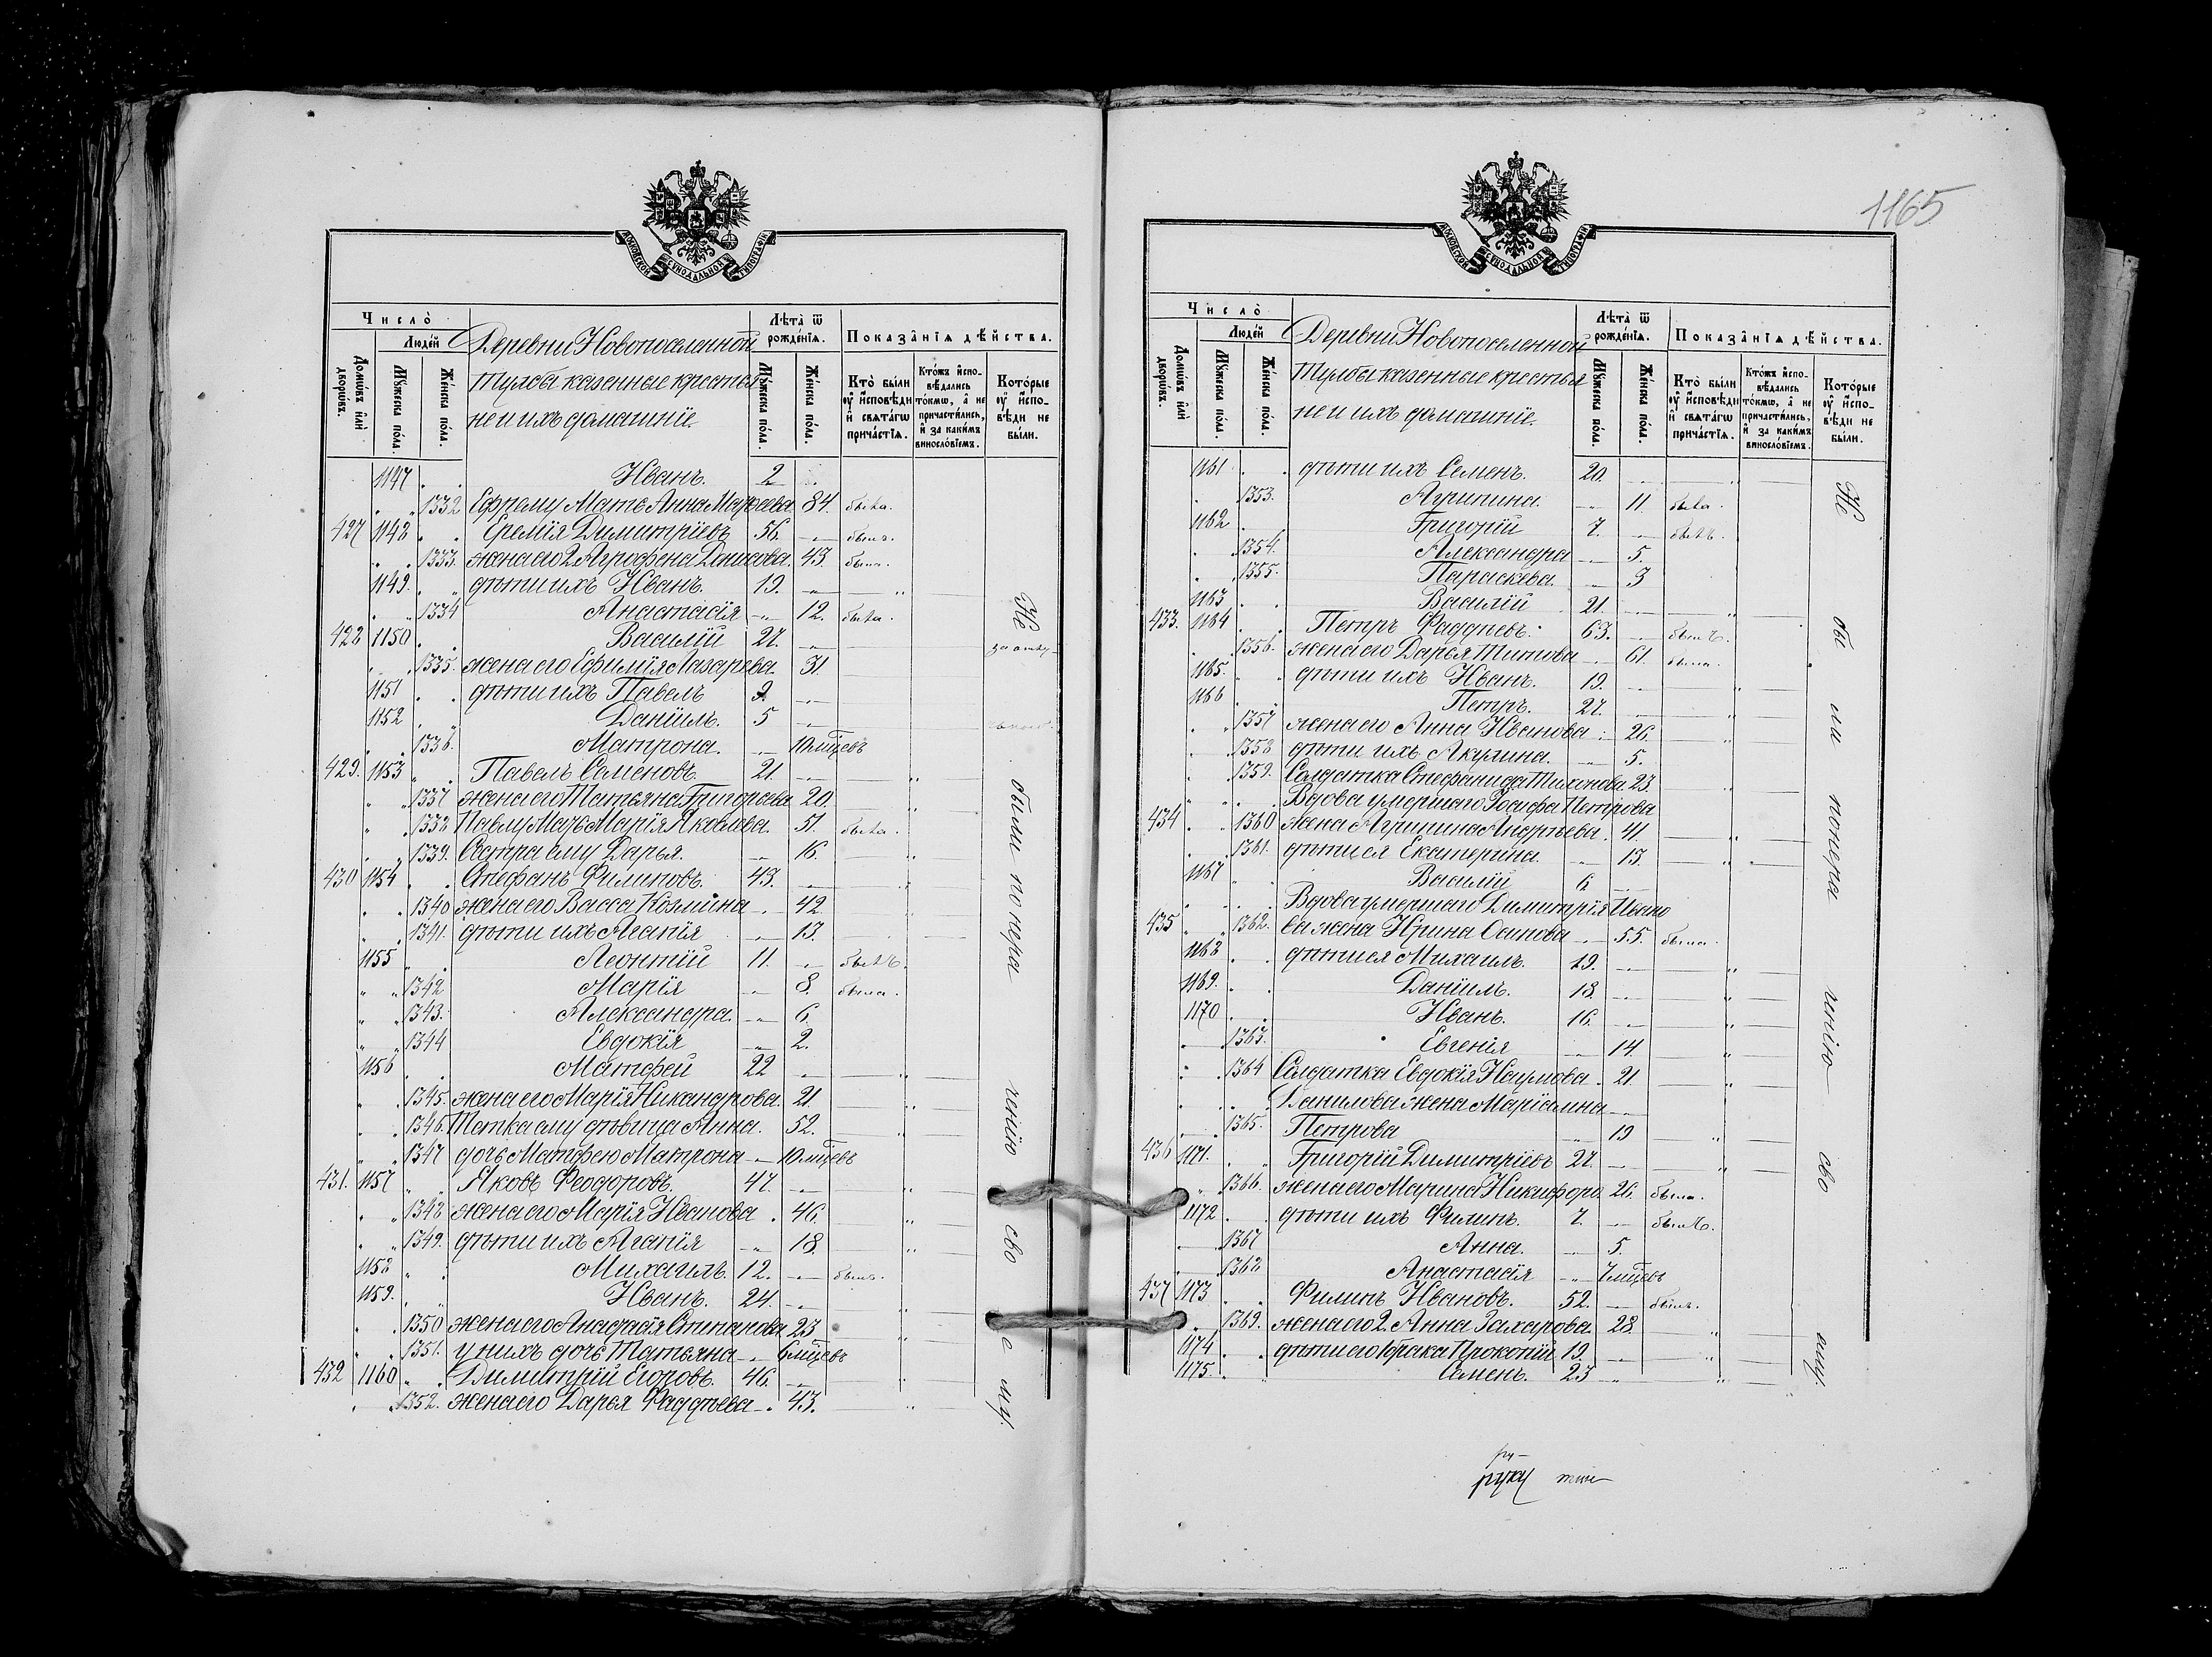 МОСКОВСКОЙ СѴНОДАЛЬНОЙ ТИПОГРАФІИ
Число̀
Домѡ́въ и҆лѝ дворѡ́въ.
Люде́й
Мꙋ́жеска по́ла.
Же́нска по́ла.
Деревни Новопоселенной
Тулбы казенные крестья
не и ихъ домашніе.
Лѣта̀ ѿ рожде́нїѧ.
Мꙋ́жеска по́ла.
Же́нска по́ла.
Показа̂нїѧ дѣ́йства.
Кто̀ бы́ли оу҆ и҆сповѣ́ди и҆ свѧта́гѡ причⷭ҇тїѧ.
Кто́жъ и҆спо-вѣ́дались то́кмѡ, а҆ не причасти́лись, и҆ за каки́мъ винослові́емъ.
Кото́рые оу҆ и҆спо-вѣ́ди не бы́ли.
1147 Иванъ. 2
1332 Ефрему Мать Анна Матѳеева 84. была.
427 1148 Еремія Димитріевъ 56. былъ.
1333. жена его 2 Агрофена Денисова. 43. была.
1149. дѣти ихъ Иванъ. 19.
1334 Анастасія 12. была.
428 1150 Василій 27.
1335. жена его Ефимія Лазарева. 31.
1151 дѣти ихъ Павелъ 9
1152 Даніилъ. 5
1336. Матрона. 10 мѣцевъ
429. 1153 Павелъ Семеновъ 21
1337 жена его Татьяна Григорьева 20.
1338 Павлу Мать Марія Яковлева. 51. была.
1339. Сестра ему Дарья. 16.
430 1154 Стефанъ Филиповъ. 43.
1340 жена его Васса Козмина 42.
1341. дѣти ихъ Агапія 13.
1155 Леонтій 11. былъ.
1342 Марія 8. была.
1343. Александра. 6.
1344 Евдокія 2.
1156 Матфей 22
1345. жена его Марія Никандрова. 21.
1346. Тетка ему дѣвица Анна. 52.
1347 дочь Матфею Матрона 10 мѣцевъ
431. 1157 Яковъ Феодоровъ. 47.
1348 жена его Марія Иванова 46.
1349. дѣти ихъ Агапія 18.
1158 Михаилъ. 12. былъ.
1159. Иванъ. 24.
1350 жена его Анафасія Степанова 23
1351. у нихъ дочь Татьяна 6 мѣцевъ
432 1160 Димитрій Егоровъ. 46.
1352. жена его Дарья Фаддѣева 43.
Не были по нера ченію сво е му.
1165
МОСКОВСКОЙ СѴНОДАЛЬНОЙ ТИПОГРАФІИ
Число̀
Домѡ́въ и҆лѝ дворѡ́въ.
Люде́й
Мꙋ́жеска по́ла.
Же́нска по́ла.
Деревни Новопоселенной
Тулбы казенные крестья
не и ихъ домашніе.
Лѣта̀ ѿ рожде́нїѧ.
Мꙋ́жеска по́ла.
Же́нска по́ла.
Показа̂нїѧ дѣ́йства.
Кто̀ бы́ли оу҆ и҆сповѣ́ди и҆ свѧта́гѡ причⷭ҇тїѧ.
Кто́жъ и҆спо-вѣ́дались то́кмѡ, а҆ не причасти́лись, и҆ за каки́мъ винослові́емъ.
Кото́рые оу҆ и҆спо-вѣ́ди не бы́ли.
1161 дѣти ихъ Семенъ. 20.
1353. Агрипина. 11. была.
1162 Григорій 7. былъ.
1354. Александра 5.
1355. Параскева. 3
1163 Василій 21.
433. 1164 Петръ Фаддѣевъ. 63. былъ.
1356. жена его Дарья Титова 61. была.
1165. дѣти ихъ Иванъ. 19.
1166 Петръ. 27.
1357 жена его Анна Иванова 26.
1358 дѣти ихъ Акулина. 5.
1359. Солдатка Стефанида Тихонова 23.
Вдова умершаго Іосифа Петрова
434 1360 жена Агрипина Андрѣева. 41.
1361. дѣти ея Екатерина. 13.
1167 Василій 6
Вдова умершаго Димитрія Ивано
435 1362. ва жена Ирина Осипова 55. была.
1168 дѣти ея Михаилъ. 19.
1169. Даніилъ. 18.
1170 Иванъ. 16.
1363. Евгенія 14.
1364 Солдатка Евдокія Наумова. 21
Данилова жена Маріамна
1365. Петрова 19
436 1171. Григорій Димитріевъ 27.
1366. жена его Марина Никифоро 26. была.
1172 дѣти ихъ Филипъ. 7. былъ.
1367 Анна. 5.
1368 Анастасія 7 мѣцевъ
437 1173 Филипъ Ивановъ. 52. былъ.
1369. жена его 2. Анна Захарова. 28.
1174 дѣти его 1 брака Прокопій 19.
1175. Семенъ. 23
Не бы ли понера ченію сво ему.
ру-
руку